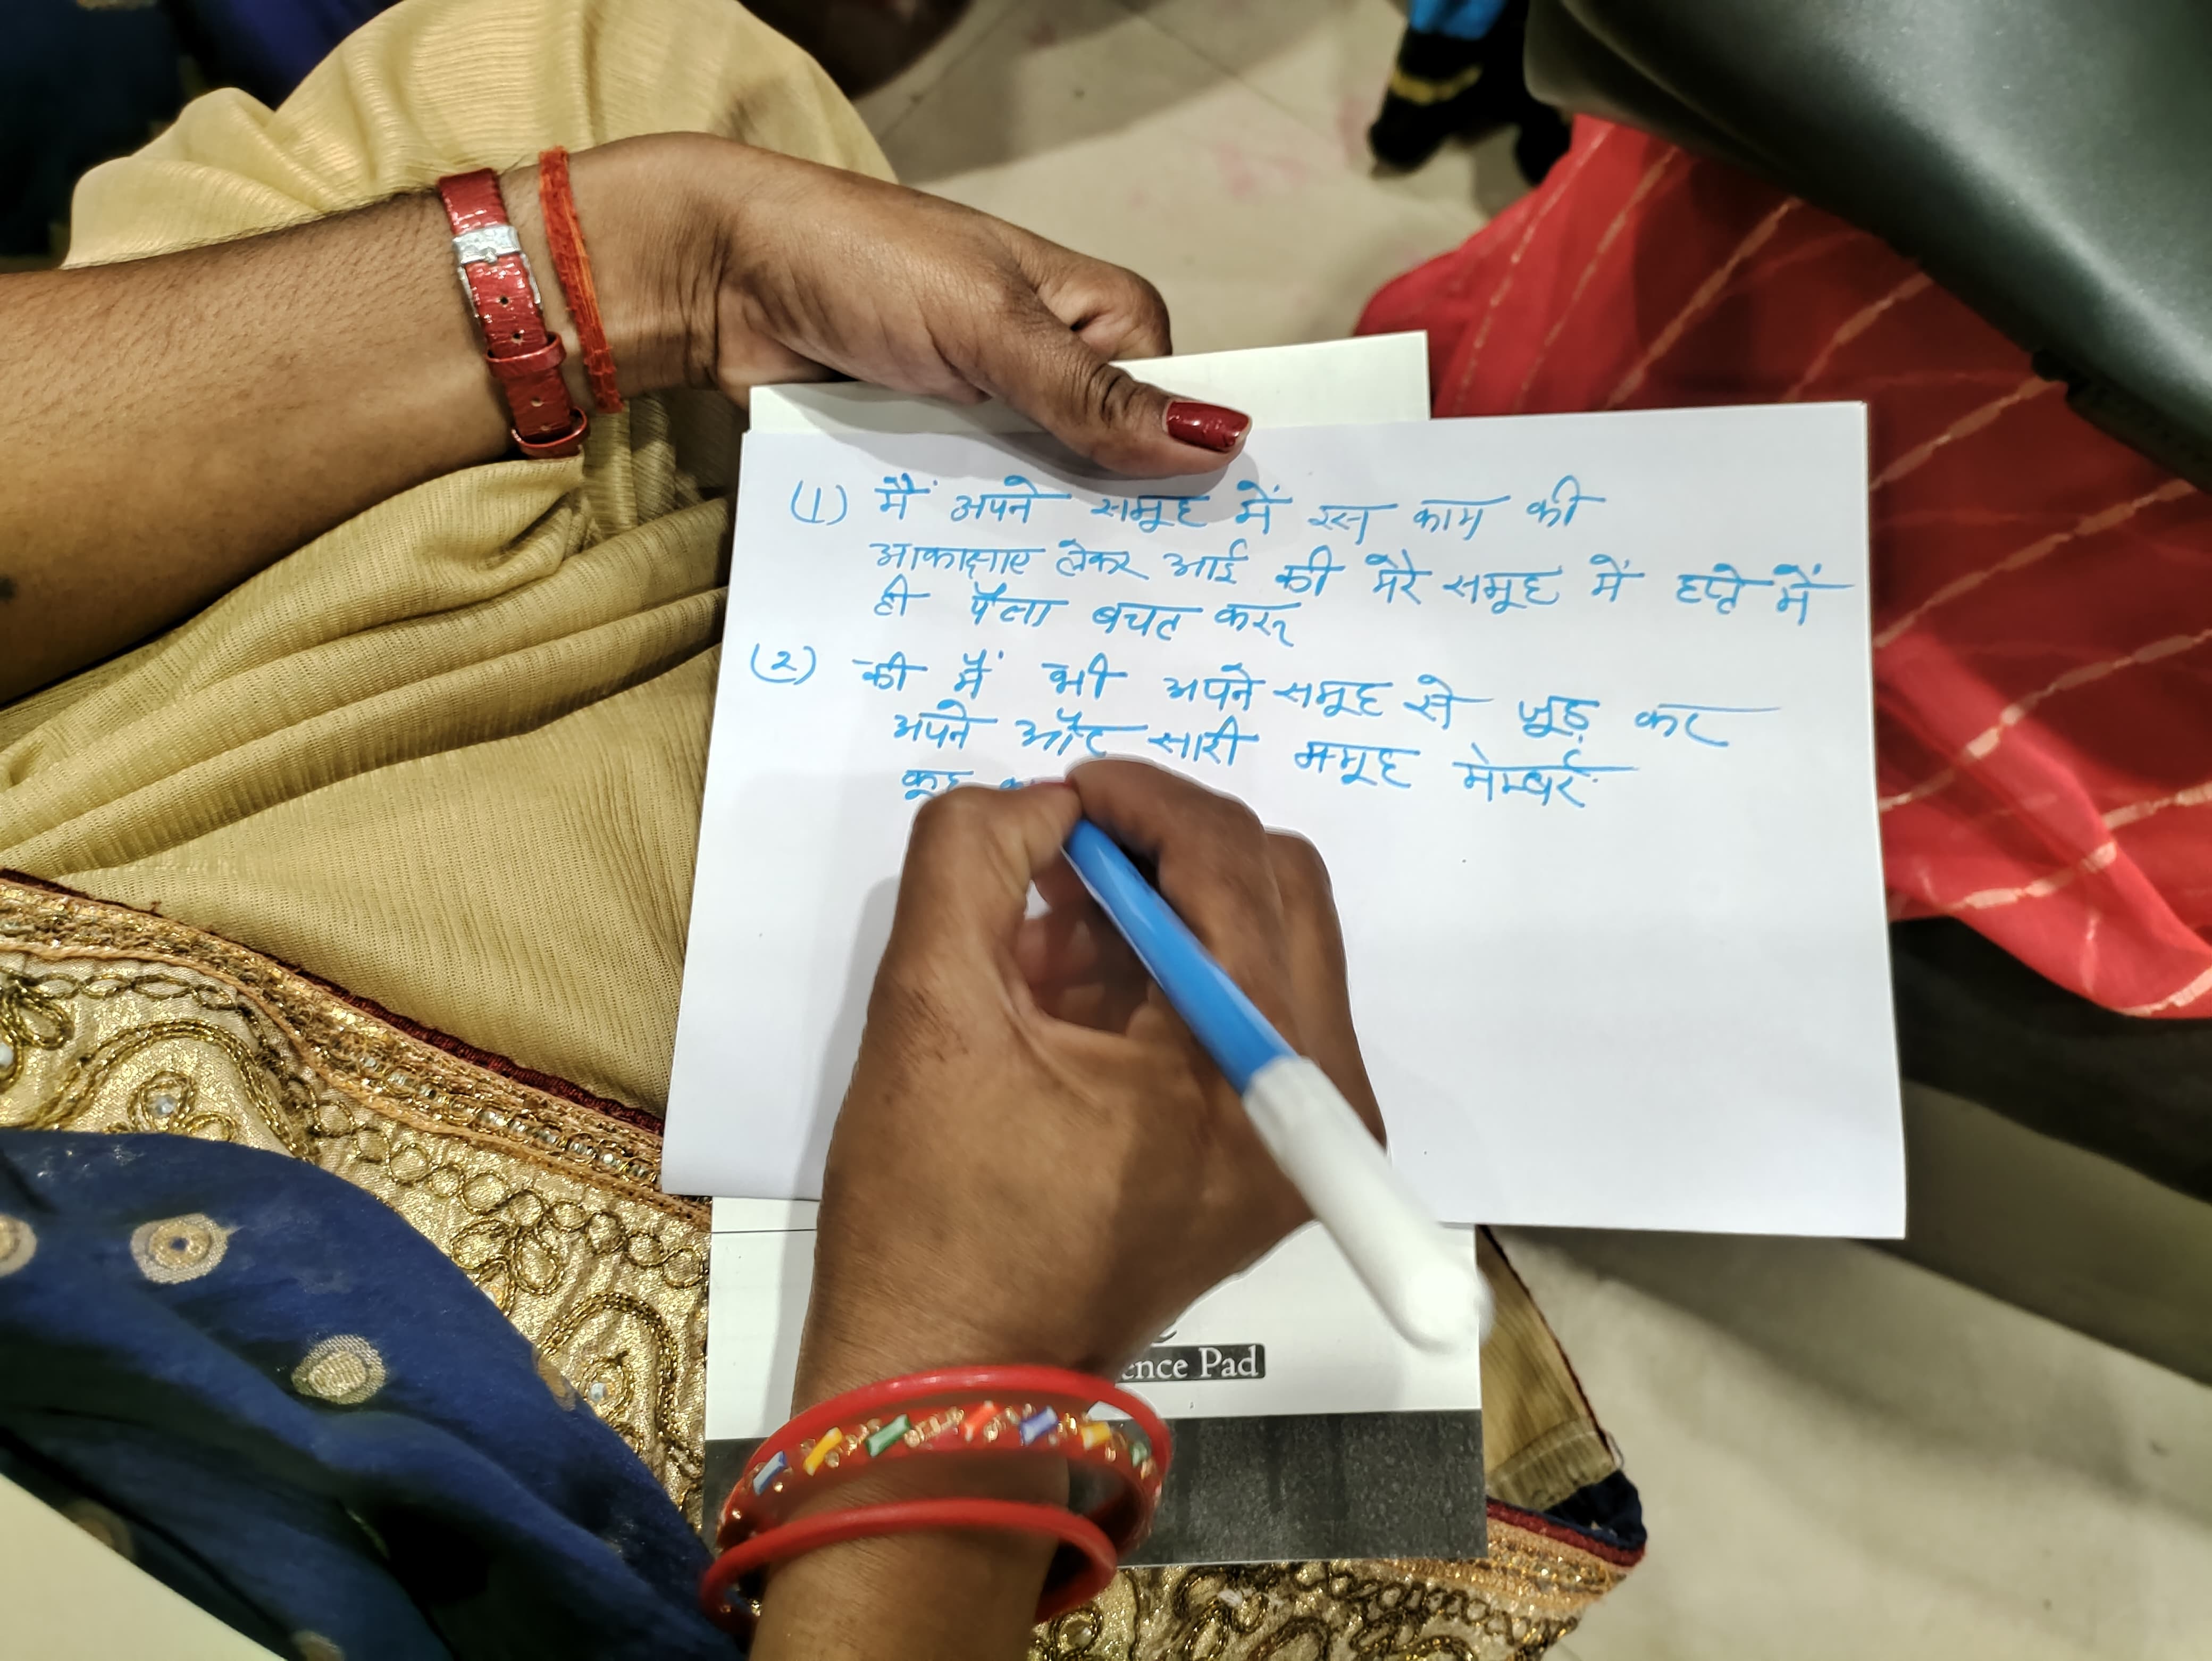 (1) मैं अपने समूह में इस काम की
आकाक्षाए लेकर आई की मेरे समूह में हप्ते में
ही पैसा बचत करू
(2) की मैं भी अपने समूह से जूड़ कर
अपने ओर सारी समूह मेम्बर
कुछ
ence Pad